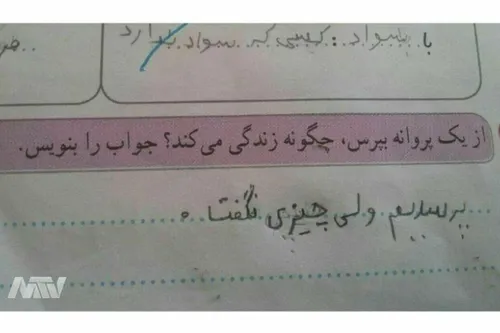 با سواد : کسی که سواد دارد
از یک پروانه بپرس، چگونه زندگی می‌کند؟ جواب را بنویس.
پرسیدیم ولی چیزی نگفت.
MTV